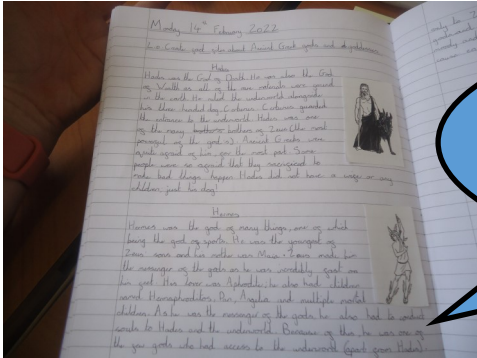 Monday 14th February 2022
L.O: Create god files about Ancient Greek gods and goddesses.
Hades
Hades was the God of Death. He was also the God
of Wealth as all of the raw materials were ground
in the world. He ruled the underworld alongside
his three headed dog Cerberus. Cerberus guarded
the entrance to the underworld. Hades was one
of the many brothers of Zeus (the most
powerful of the gods). Ancient Greeks were
afraid of him, for the most part. Some
people were so afraid that they
made bad things happen. Hades did not have a wife or any
children, just his dog!
Hermes
Hermes was the god of many things, one of which
being the god of sports. He was the youngest of
Zeus' sons and his mother was Maia. Zeus made him
the messenger of the gods as he was incredibly fast on
his feet. His lover was Aphrodite, he also had children
named Hermaphroditus, Pan, Angelia and multiple mortal
children. As he was the messenger of the gods, he also had to conduct
souls to Hades and the underworld. Because of this, he was one of
the few gods who had access to the underworld (apart from Hades)